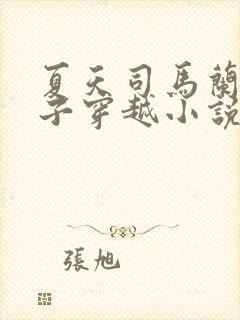 夏天司馬蘭
子穿越小說
張旭